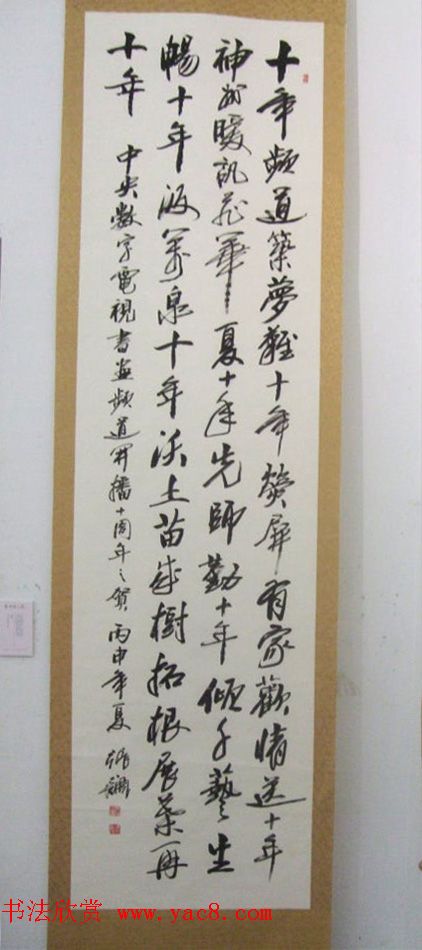 十年頻道築夢難十年熒屏有家歡情送十年
神州暖訊飛華夏十年先師勤十年傾千藝生
暢十年汲萬泉十年沃土苗成樹拓根展葉再
十年 中央數字電視書畫頻道開播十周年之賀 丙申年夏
书法欣赏 www.yac8.com